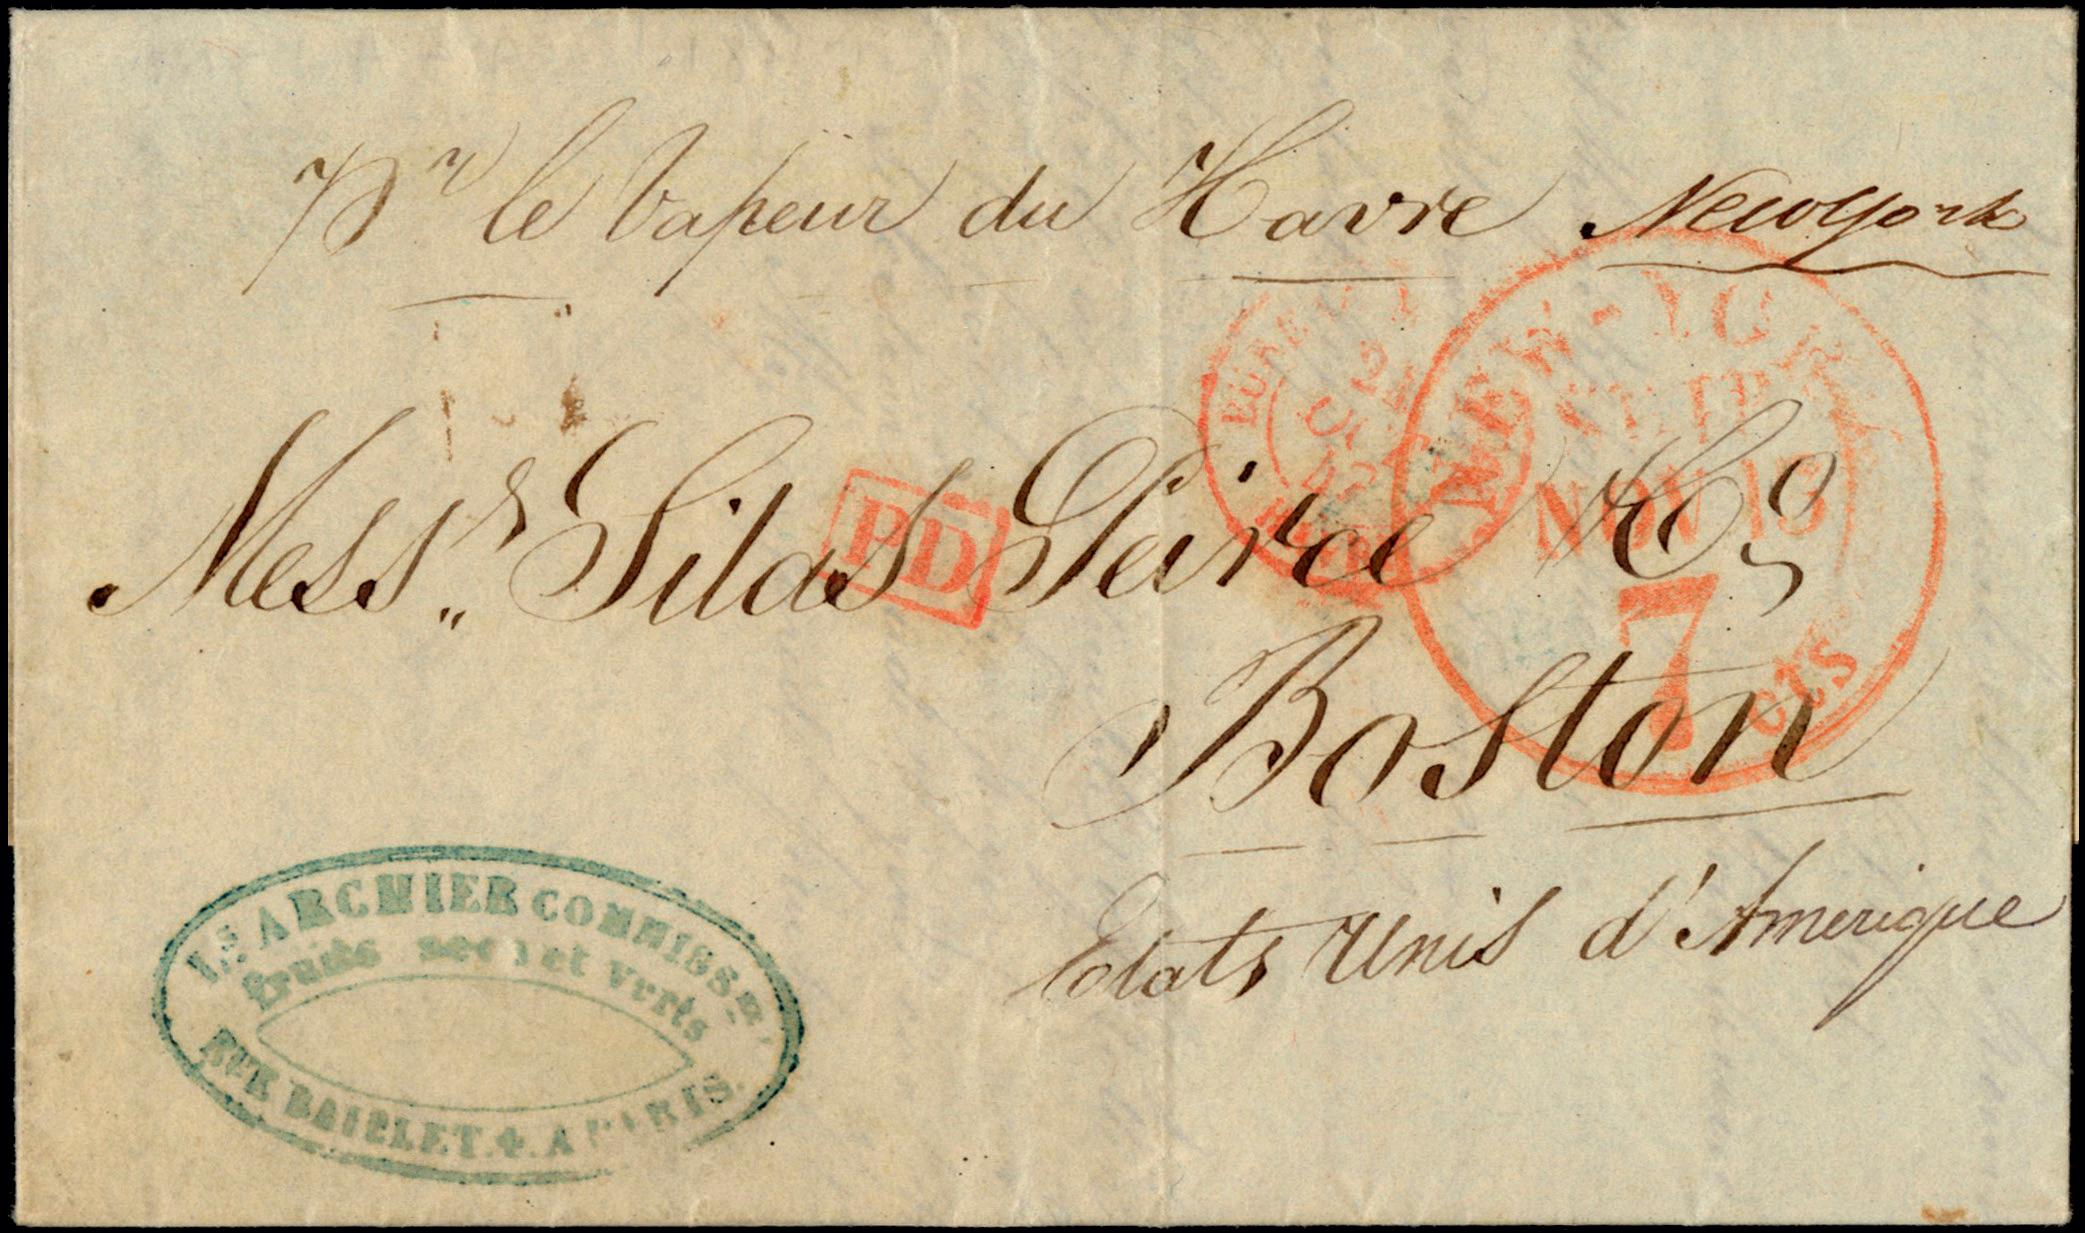 Pr le Vapeur du Havre Newyork
Messrs Silas Peirce & Co
Boston
Etats Unis d'Amerique
PD
21
OCT
NEW-YORK
SHIP
NOV 13
7
cts
ARCHIER COMMISS
fruits secs et verts
RUE BAILLET. 4. A PARIS.